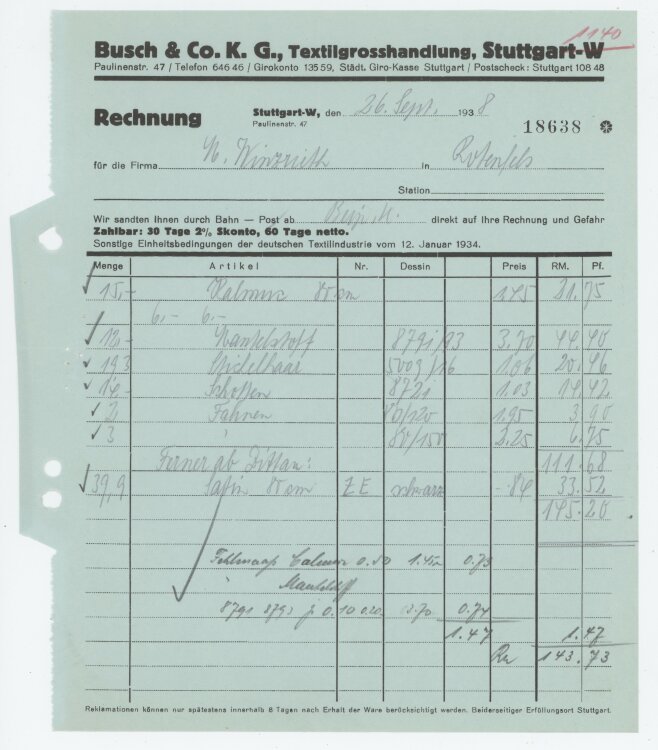 1140
Busch & Co. K. G., Textilgrosshandlung, Stuttgart-W
Paulinenstr. 47 / Telefon 646 46 / Girokonto 135 59, Städt. Giro-Kasse Stuttgart / Postscheck: Stuttgart 108 48
Rechnung
Stuttgart-W, den 26. Sept. 1938
Paulinenstr. 47
18638
für die Firma N. in Rotenfels
Station
Wir sandten Ihnen durch Bahn — Post ab direkt auf Ihre Rechnung und Gefahr
Zahlbar: 30 Tage 2% Skonto, 60 Tage netto.
Sonstige Einheitsbedingungen der deutschen Textilindustrie vom 12. Januar 1934.
Menge Artikel Nr. Dessin Preis RM. Pf.
15,- 80 cm 1.45 21.75
6,- 6,-
12,- Mantelstoff 8791/93 3.70 44.40
19,3 5009/16 1.06 20.46
14,- 8721 1.03 14.42
2 Fahnen 80/120 1.95 3.90
3 " 80/150 2.25 6.75
Ferner ab Zittau: 111.68
39,9 Satin 80 cm ZE schwarz -.84 33.52
145.20
0.50 1.45 0.73
" Mantelstoff
8791 8793 je 0.10 0.20 3.70 0.74
1.47 1.47
RM 143.73
Reklamationen können nur spätestens innerhalb 8 Tagen nach Erhalt der Ware berücksichtigt werden. Beiderseitiger Erfüllungsort Stuttgart.